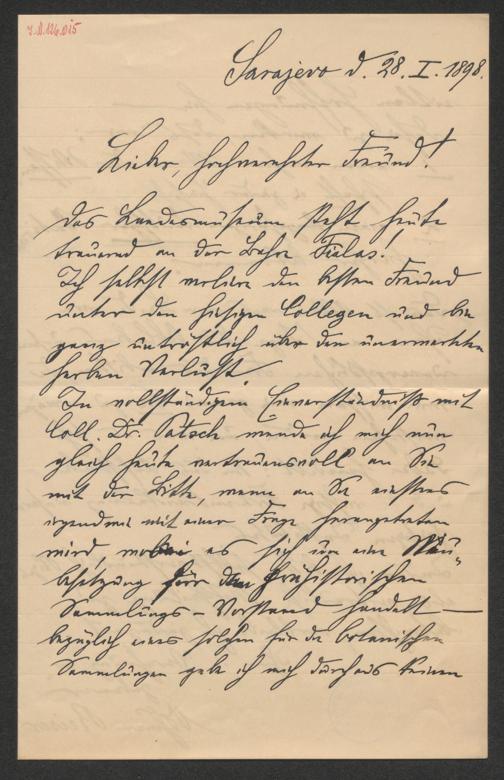 J.N. 126.015
Sarajevo d. 28. I. 1898.
Lieber, hochverehrter Freund!
Das Landesmuseum steht heute
trauernd an der Bahre Fialas!
Ich selbst verliere den besten Freund
unter den hiesigen Collegen und bin
ganz untröstlich über den unerwarteten
herben Verlust.
In vollständigem Einverständniß mit
Coll. Dr. Patsch wende ich mich nun
gleich heute vertrauensvoll an Sie
mit der Bitte, wenn an Sie
irgendwie mit einer Frage herangetreten
wird, wobei es sich um eine Neu-
besetzung für den prähistorischen
Sammlungs-Vorstand handelt —
bezüglich eines solchen für die botanischen
Sammlungen gebe ich mich durchaus keinen